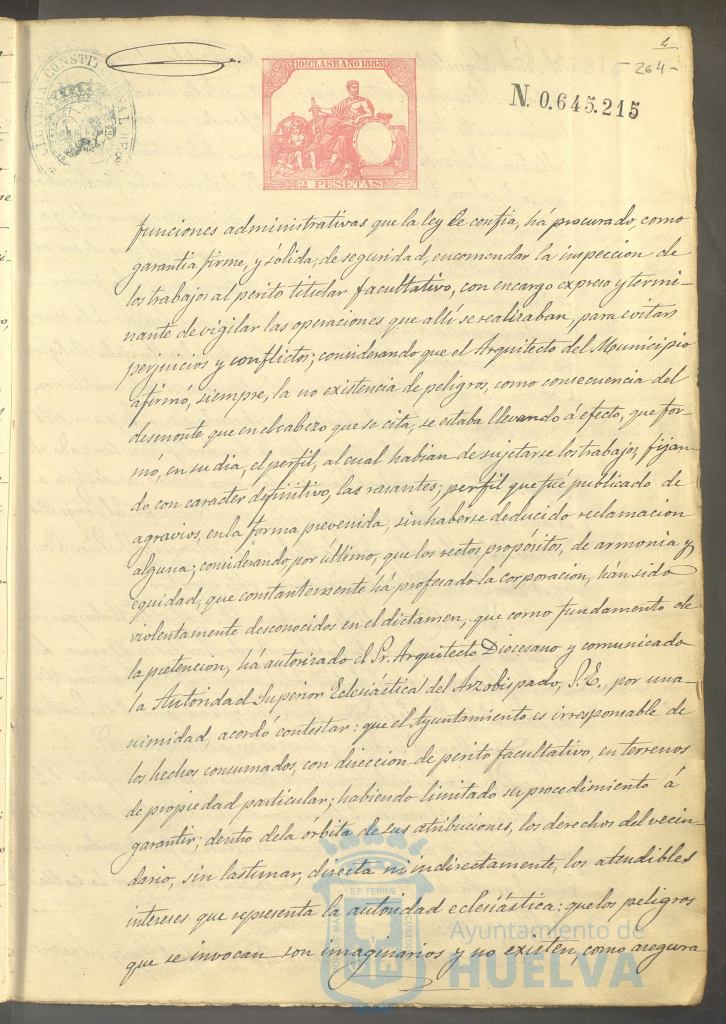 2
-264-
ALCALDIA CONSTITUCIONAL
10ª CLASE AÑO 1883
N. 0.645.215
2 PESETAS
funciones administrativas que la ley le confia, há procurado, como
garantia firme, y sólida, de seguridad, encomendar la inspeccion de
los trabajos al perito titular facultativo, con encargo expreso y termi-
nante de vigilar las operaciones que alli se realizaban, para evitar
perjuicios y conflictos; considerando que el Arquitecto del Municipio
afirmó, siempre, la no existencia de peligros, como consecuencia del
desmonte que en el cabezo que se cita, se estaba llevando á efecto, que for-
mó, en su dia, el perfil, al cual habian de sujetarse los trabajos, fijan-
do con caracter definitivo, las rasantes; perfil que fué publicado de
agravios, en la forma prevenida, sin haberse deducido reclamacion
alguna; considerando, por último, que los rectos propósitos, de armonia y
equidad, que constantemente há profesado la corporacion, hán sido
violentamente desconocidos en el dictamen, que como fundamento de
la pretencion, há autorizado el Sr. Arquitecto Diocesano y comunicado
la Autoridad Superior Eclesiástica del Arzobispado, S. E., por una-
nimidad, acordó contestar: que el Ayuntamiento es irresponsable de
los hechos consumados, con direccion de perito facultativo, en terrenos
de propiedad particular; habiendo limitado su procedimiento á
garantir, dentro dela órbita de sus atribuciones, los derechos del vecin-
dario, sin lastimar, directa ni indirectamente, los atendibles
intereses que representa la autoridad eclesiástica: que los peligros
que se invocan son imaginarios y no existen, como asegura
Ayuntamiento de
HUELVA